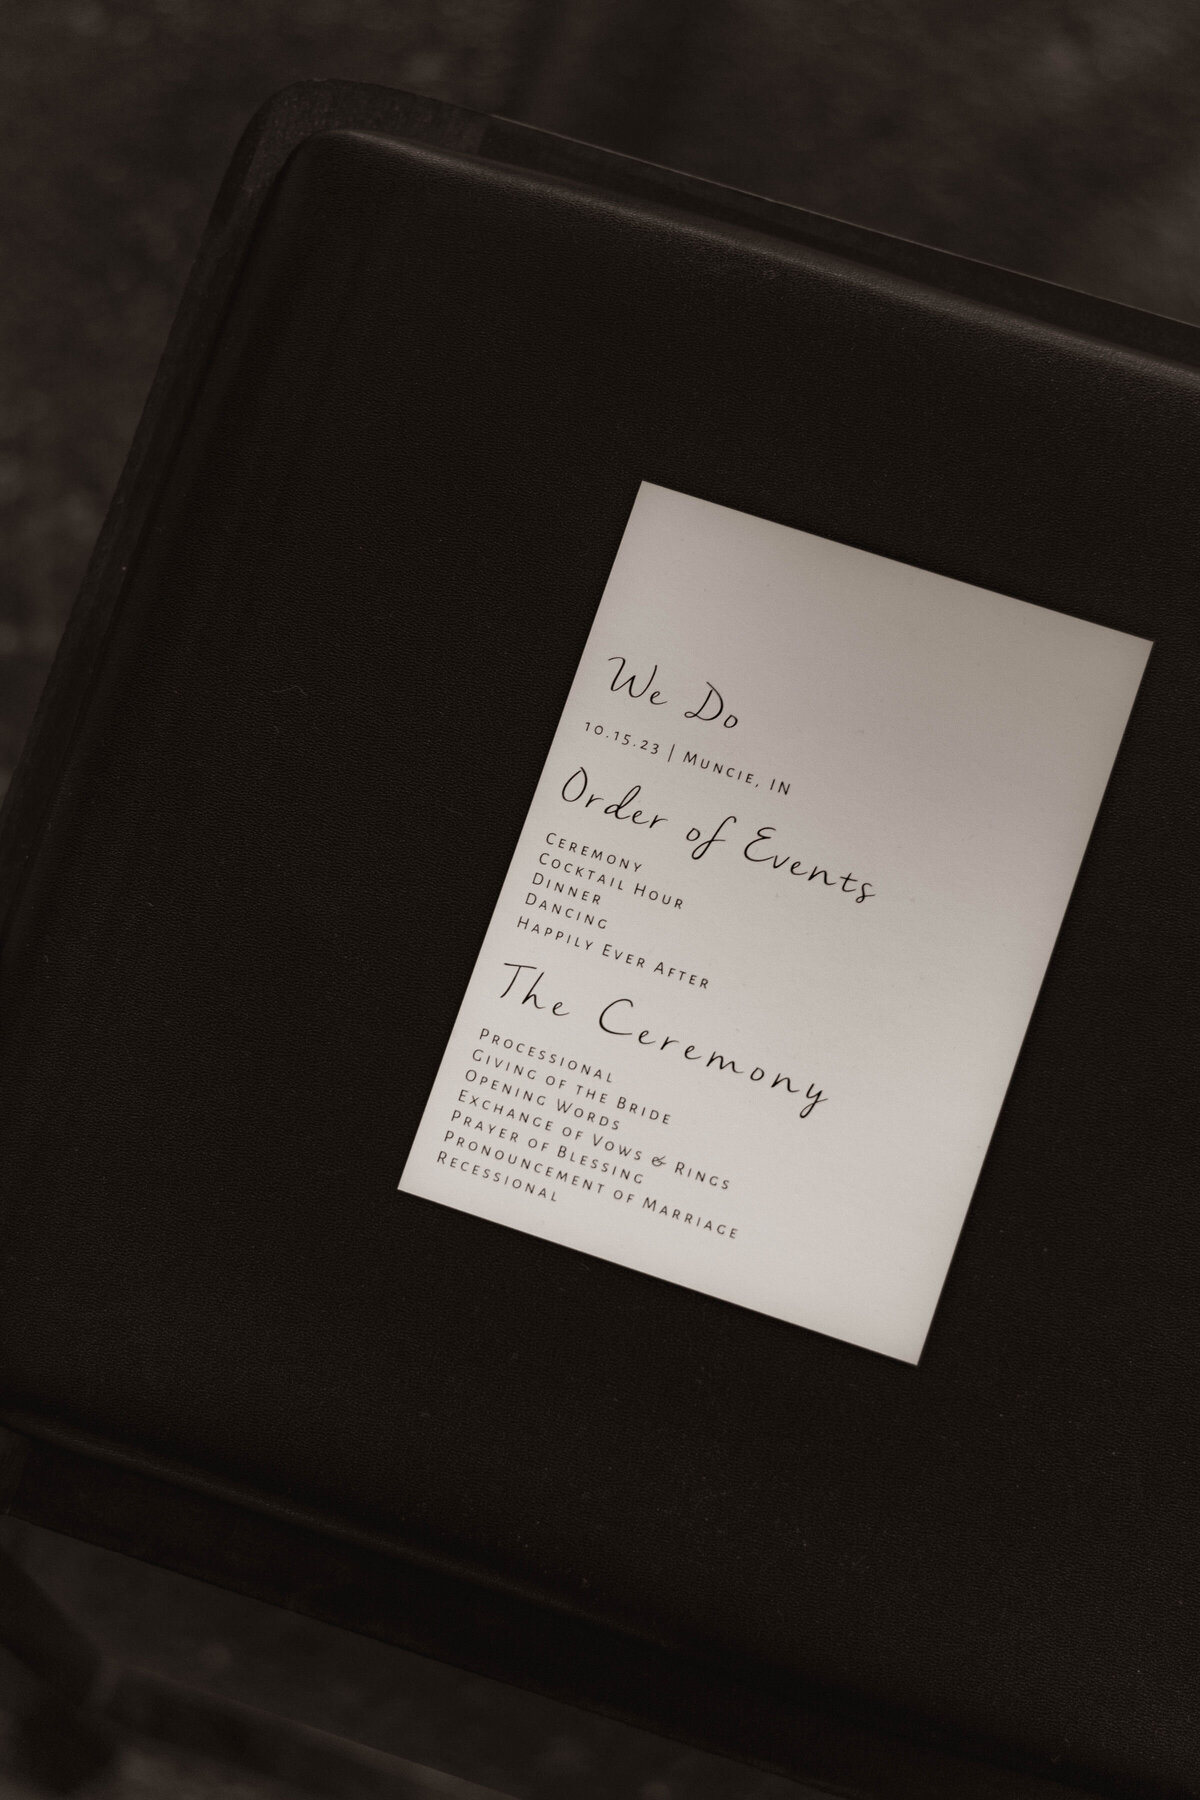 We Do
10.15.23 | Muncie, IN
Order of Events
Ceremony
Cocktail Hour
Dinner
Dancing
Happily Ever After
The Ceremony
Processional
Giving of the Bride
Opening Words
Exchange of Vows & Rings
Prayer of Blessing
Pronouncement of Marriage
Recessional